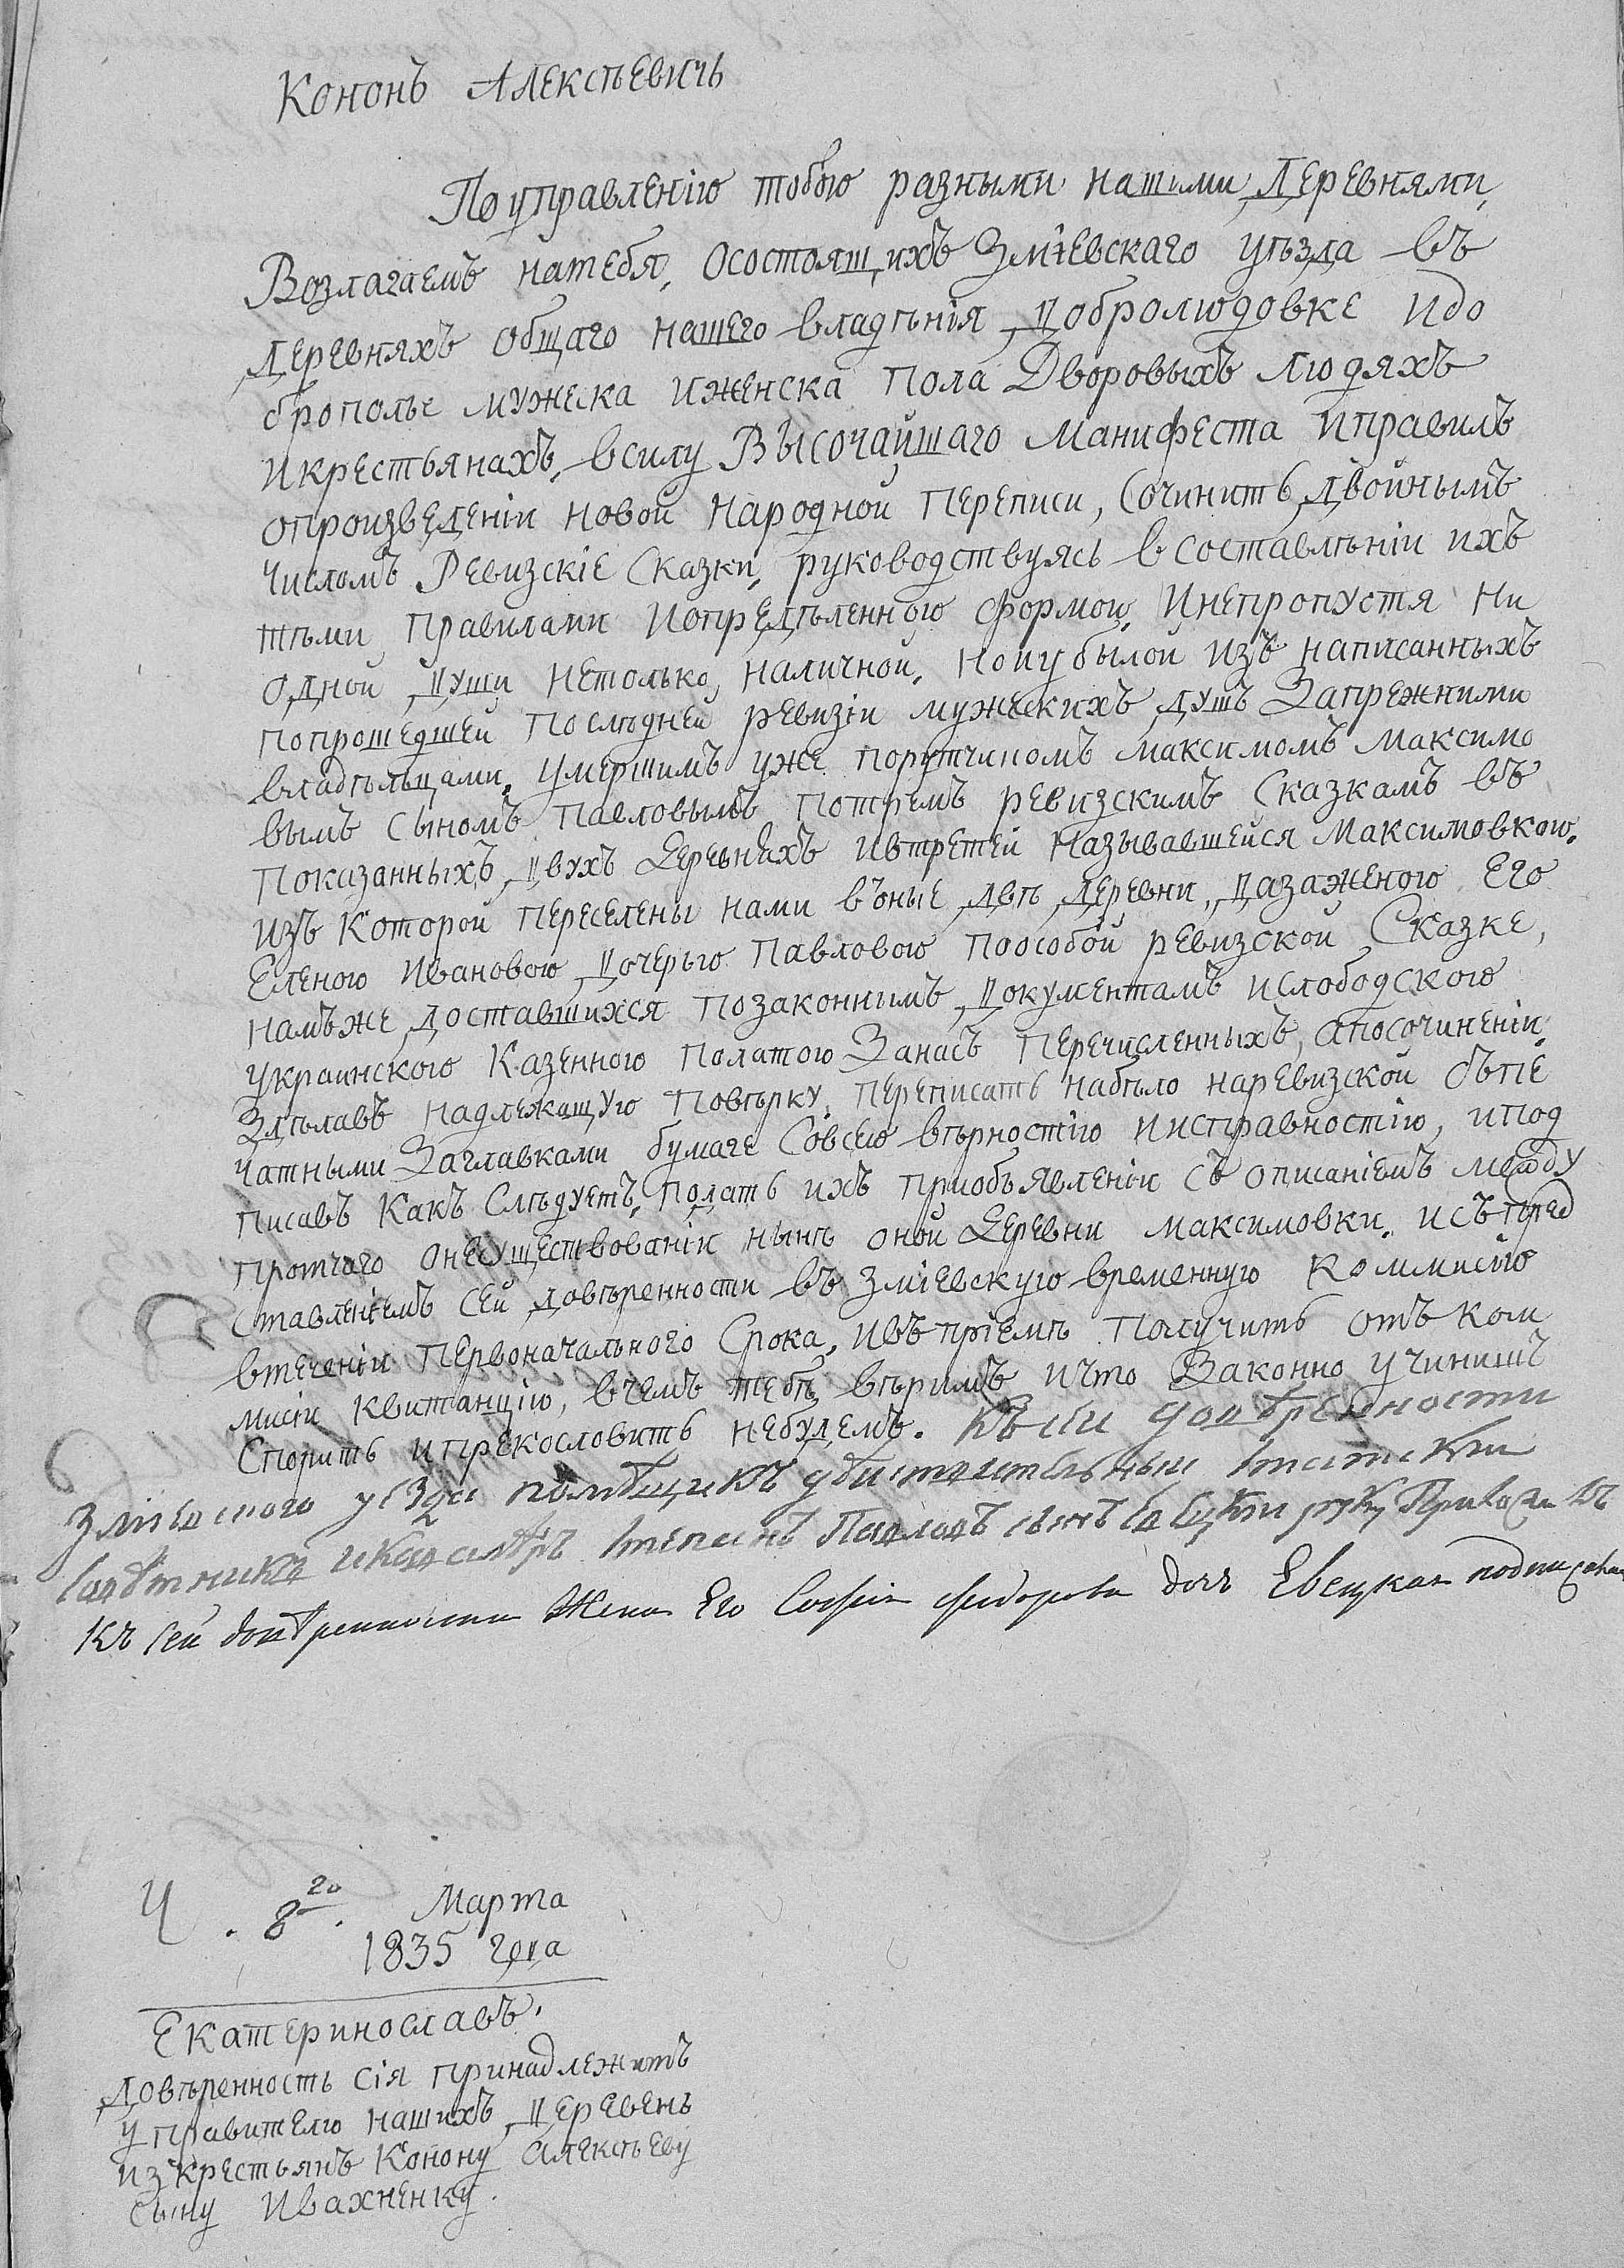 Кононъ Алексѣевичь
По управленію тобою разными нашими деревнями,
Возлагаемъ натебя, осостоящихъ Зміевскаго уѣзда въ
деревняхъ общаго нашего владѣнія добролюдовке идо
брополье мужеска иженска пола Дворовыхъ людяхъ
икрестьянахъ, всилу Высочайшаго Манифеста иправилъ
опроизведеніи новой народной переписи, сочинить двойнымъ
числомъ Ревизскіе Сказки, руководствуясь всоставлѣніи ихъ
тѣми правилами иопредѣленною формою, инепропустя ни
одной души нетолько наличной, ноиубылой изъ написанныхъ
попрошедшей послѣдней ревизіи мужескихъ душъ Запрежними
владѣльцами, умершимъ уже порутчикомъ Максимомъ Максимо
вымъ сыномъ Павловымъ потремъ ревизскимъ Сказкамъ въ
показанныхъ двухъ Деревняхъ ивтретей называвшейся Максимовкою,
изъ которой переселены нами въоные двѣ деревни, дазаженою его
Еленою Ивановою дочерью Павловою поособой ревизской Сказке,
намъже доставшихся позаконнымъ документамъ ислободскою
украинскою Казенною полатою Занасъ перечисленныхъ, апосочиненіи,
Здѣлавъ надлежащую повѣрку, переписать набѣло наревизской съпе
чатными Заглавками бумаге Совсею вѣрностію иисправностію, ипод
писавъ какъ слѣдуетъ, подать ихъ приобъявленіи съ описаніемъ между
протчаго онесуществованіи нынѣ оной Деревни Максимовки, исъпред
ставленіемъ сей довѣренности въ Зміевскую временную коммисію
втеченіи первоначального Срока, ивъ пріемѣ получить отъ ком
мисіи квитанцію, вчемъ тебѣ вѣримъ ичто Законно учинишъ
Спорить ипрекословить небудемъ. Къ сей доверенности
Зміевского уезда помѣщикъ действительный статскій
Советникъ икавалеръ Степанъ Павловъ сынъ Евецкій руку Приложилъ
Къ сей доверенности Жена Его Софія Федорова дочь Евецкая подписалась
Ч. 8го. Марта
1835 года
Екатеринославъ.
Довѣренность сія принадлежитъ
управителю нашихъ деревень
изкрестьянъ Конону Алексѣеву
сыну Ивахненку.